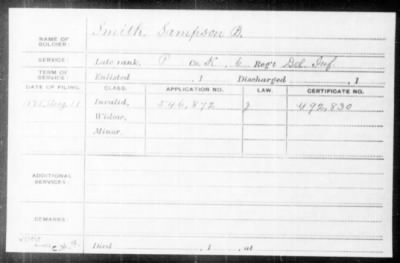 NAME OF SOLDIER: Smith Sampson B.
SERVICE: Late rank, P Co. K, 6 Reg't Del Inf
TERM OF SERVICE: Enlisted , 1 Discharged , 1
DATE OF FILING. CLASS. APPLICATION NO. LAW. CERTIFICATE NO.
Aug. 11 Invalid, 546,872 J 492,830
Widow,
Minor.
ADDITIONAL SERVICES:
REMARKS:
Died , 1 , at